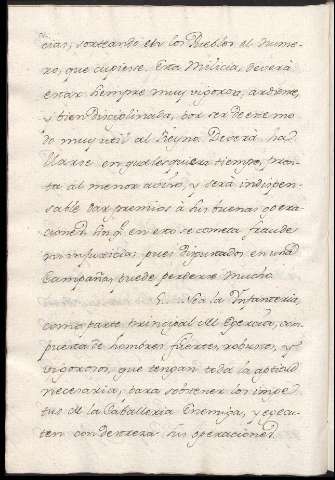 cias, sorteando en los Pueblos el nume-
ro, que cupiese. Esta Milicia, deverá
estar siempre muy vigoroso, ardiente,
y bien disciplinada, por ser de este mo-
do muy util al Reyno. Deverá ha-
llarse en qualesquiera tiempo, pron-
ta al menor aviso, y será indispen-
sable dar premios á sus buenas opera-
ciones, sin q. en esto se cometa fraude
ni injusticia, pues disgustados en una
Campaña, puede perderse mucho.
6. Sea la Infanteria,
como parte principal del Exercito, com-
puesta de hombres fuertes, robustos, y
vigorosos, que tengan toda la aptitud
necesaria, para sostener los impe-
tus de la Caballeria Enemiga, y execu-
ten con destreza sus operaciones.